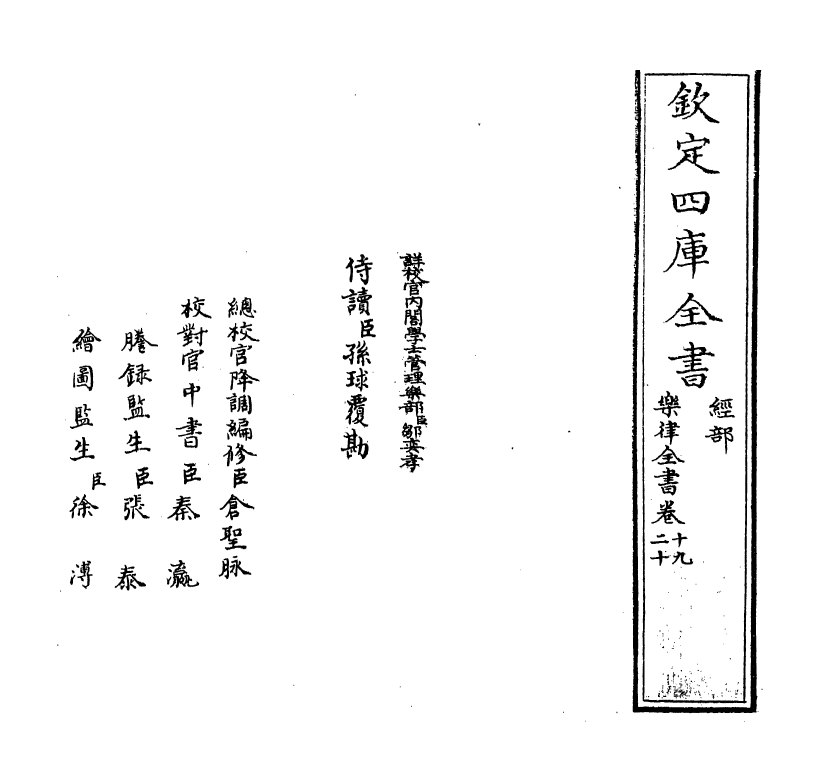 欽定四庫全書
經部
樂律全書卷十九
二十
詳校官內閣學士管理樂部臣鄒奕孝
侍讀臣孫球覆勘
總校官降調編修臣倉聖脉
校對官中書臣秦瀛
謄錄監生臣張泰
繪圖監生臣徐溥